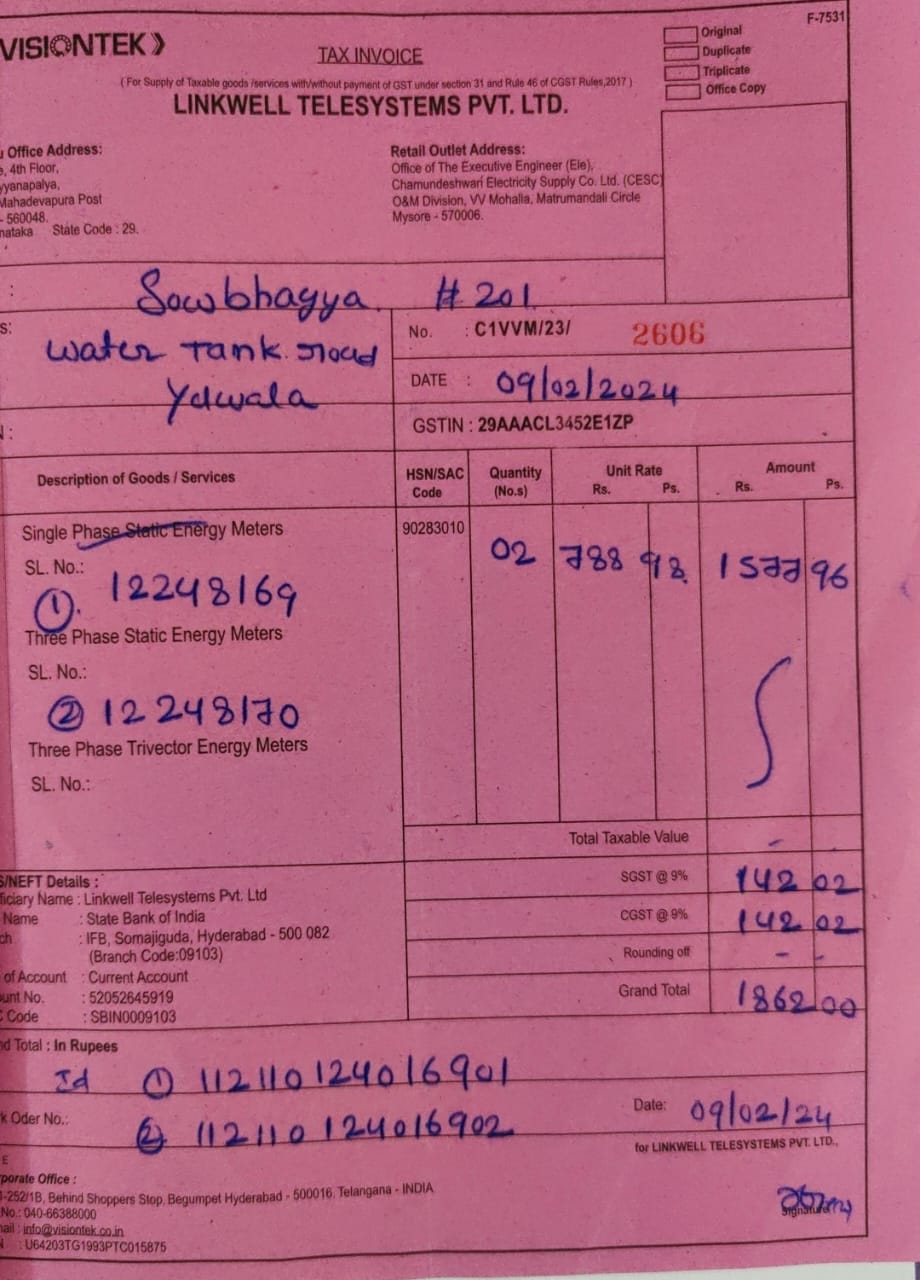 F-7531
VISIONTEK
TAX INVOICE
Original
Duplicate
Triplicate
Office Copy
( For Supply of Taxable goods /services with/without payment of GST under section 31 and Rule 46 of CGST Rules,2017 )
LINKWELL TELESYSTEMS PVT. LTD.
Office Address:
, 4th Floor,
yyanapalya,
Mahadevapura Post
- 560048.
nataka State Code : 29.
Retail Outlet Address:
Office of The Executive Engineer (Ele),
Chamundeshwari Electricity Supply Co. Ltd. (CESC)
O&M Division, VV Mohalla, Matrumandali Circle
Mysore - 570006.
: Sowbhagya # 201
s: water Tank road
Ydwala
No. : C1VVM/23/ 2606
DATE : 09/02/2024
GSTIN : 29AAACL3452E1ZP
Description of Goods / Services HSN/SAC Code Quantity (No.s) Unit Rate Rs. Ps. Amount Rs. Ps.
Single Phase Static Energy Meters 90283010 02 788 98 1577 96
SL. No.:
① 12248169
Three Phase Static Energy Meters
SL. No.:
② 12248170
Three Phase Trivector Energy Meters
SL. No.:
Total Taxable Value -
SGST @ 9% 142 02
CGST @ 9% 142 02
Rounding off - -
Grand Total 1862 00
S/NEFT Details :
ficiary Name : Linkwell Telesystems Pvt. Ltd
Name : State Bank of India
ch : IFB, Somajiguda, Hyderabad - 500 082
(Branch Code:09103)
of Account : Current Account
unt No. : 52052645919
C Code : SBIN0009103
nd Total : In Rupees
Id ① 112110124016901
k Oder No.: ② 112110124016902
Date: 09/02/24
for LINKWELL TELESYSTEMS PVT. LTD.,
E
porate Office :
-252/1B, Behind Shoppers Stop, Begumpet Hyderabad - 500016. Telangana - INDIA
No.: 040-66388000
ail : info@visiontek.co.in
: U64203TG1993PTC015875
Signature